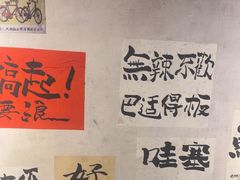 搞起!
要浪
無辣不歡
巴适得板
哇塞
好